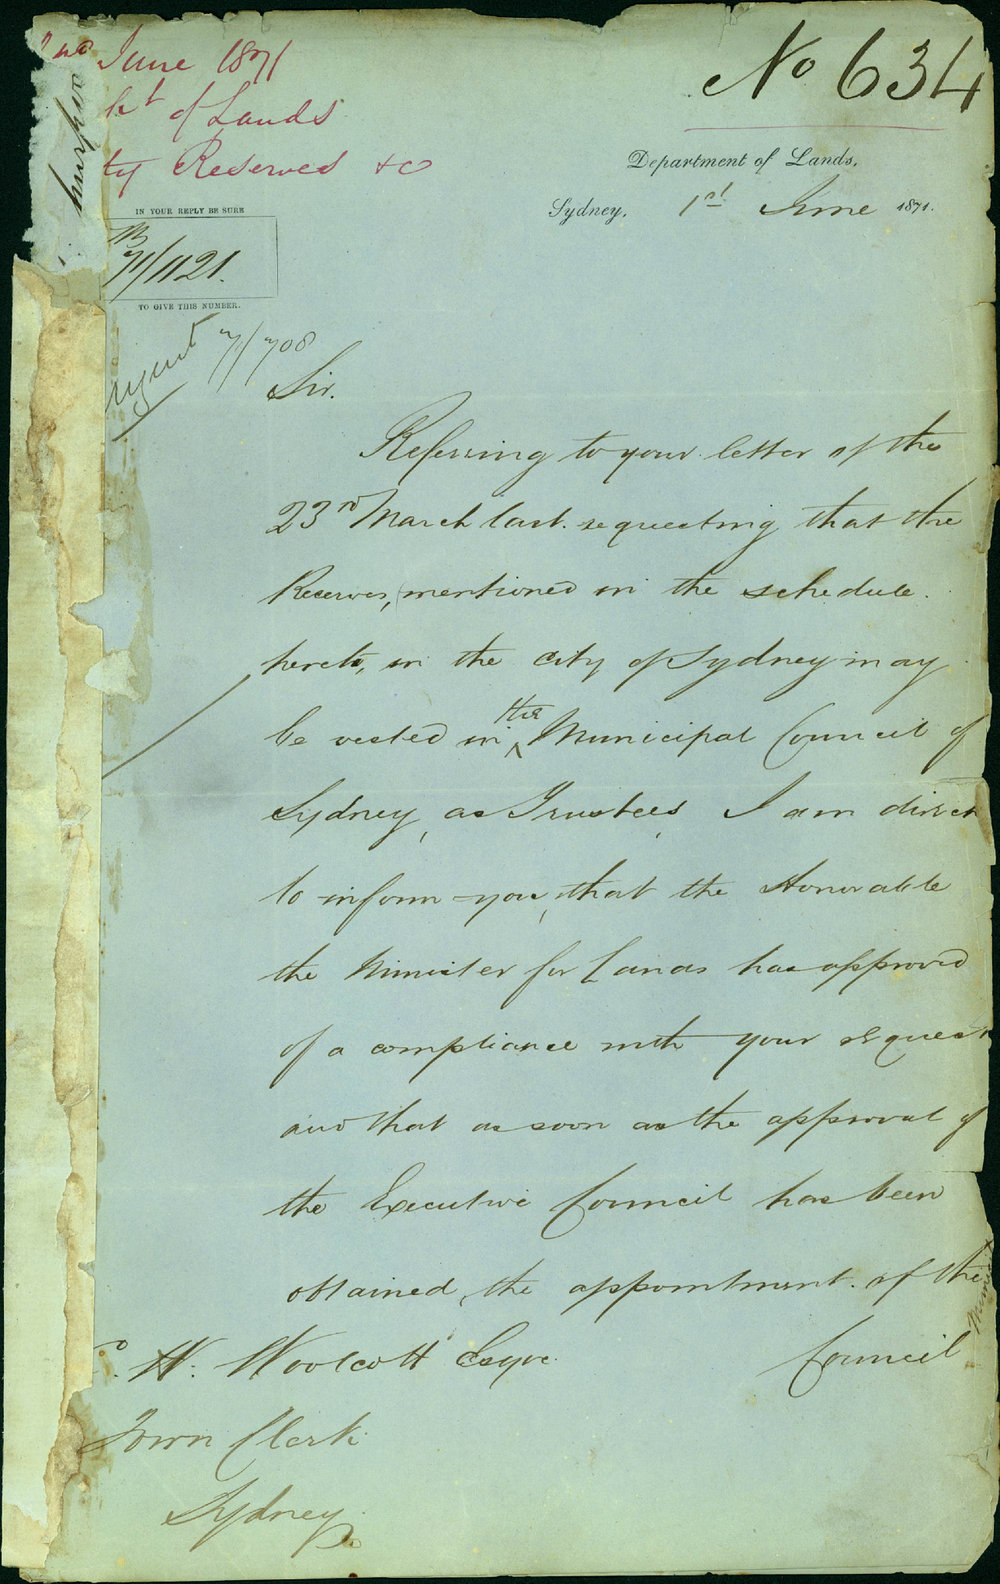 No 634
June 1871
of Lands
ty Reserves &c
Department of Lands,
Sydney, 1st June 1871.
IN YOUR REPLY BE SURE
71/1121.
TO GIVE THIS NUMBER.
71/708
Sir.
Referring to your letter of the
23rd March last. requesting that the
Reserves, mentioned in the schedule.
hereto, in the city of Sydney may
be vested in the Municipal Council of
Sydney, as Trustees, I am direct
to inform you, that the Honorable
the Minister for Lands has approved
of a compliance with your request
and that as soon as the approval of
the Executive Council has been
obtained, the appointment of the
Council
W. Woolcott Esqre.
Town Clerk
Sydney